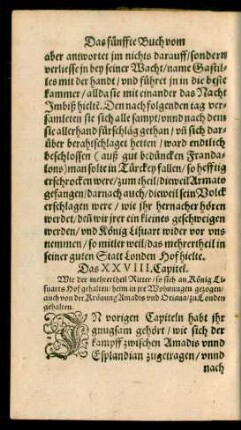 Das fünffte Buch vom
aber antwortet jm nichts darauff/ sondern
verliesse jn bey seiner Wacht/ name Gastil-
les mit der handt/ vnd führet jn in die beste
kammer/ allda sie mit einander das Nacht
Imbiß hielte. Den nachfolgenden tag ver-
samleten sie sich alle sampt/ vnnd nach dem
sie allerhand fürschläg gethan/ vn sich dar-
über berahtschlaget hetten/ ward endtlich
beschlossen (auß gut bedüncken Franda-
lons) man solte in Türckey fallen/ so hefftig
erschrocken were/ zum theil/ dieweil Armato
gefangen/ darnach auch/ dieweil sein Volck
erschlagen were/ wie jhr hernacher hören
werdet/ deß wir jrer ein kleines geschweigen
werden/ vnd König Lisuart wider vor vns
nemmen/ so mitler weil/ das mehrertheil in
seiner guten Statt Londen Hof hielte.
Das XXVIII. Capitel.
Wie der mehrertheil Ritter/ so sich an König Li-
suarts Hof gehalten/ heim in jre Wohnungen gezogen/
auch von der Krönung Amadis vnd Oriana/ zu Londen
gehalten.
IN vorigen Capiteln habt jhr
gnugsam gehört/ wie sich der
kampff zwischen Amadis vnnd
Esplandian zugetragen/ vnnd
nach